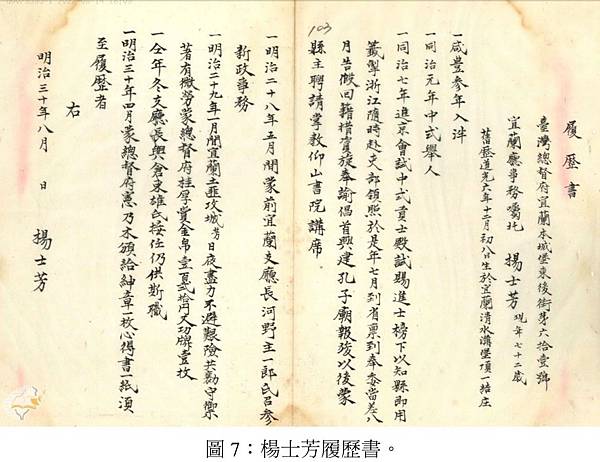 履歷書
臺灣總督府宜蘭本城堡東後街第六拾壹號
宜蘭廳事務囑托 楊士芳 現年七十二歲
舊歷道光六年十二月初八日生於宜蘭清水溝堡頂一結庄
一咸豐參年入泮
一同治元年中式舉人
一同治七年進京會試中式貢士殿試賜進士榜下以知縣即用
籤掣浙江隨時赴支部領照於是年七月到省稟到奉委當差八
月告假回籍措資旋奉諭倡首興建孔子廟報竣以後蒙
縣主聘請掌教仰山書院講席。
103
一明治二十八年五月間蒙前宜蘭支廳長河野主一郎氏召參
新政事務
一明治二十九年一月間宜蘭土匪攻城芳日夜盡力不避艱險共勷守禦
著有微勞蒙總督府厚賞金帛壹百貳拾円又功牌壹枚
一仝年冬支廳長與倉東雄氏接任仍供斯職
一明治三十年四月蒙總督府憲乃木頒給紳章一枚心得書一紙須
至履歷者
右
明治三十年八月 日 楊士芳
圖 7：楊士芳履歷書。